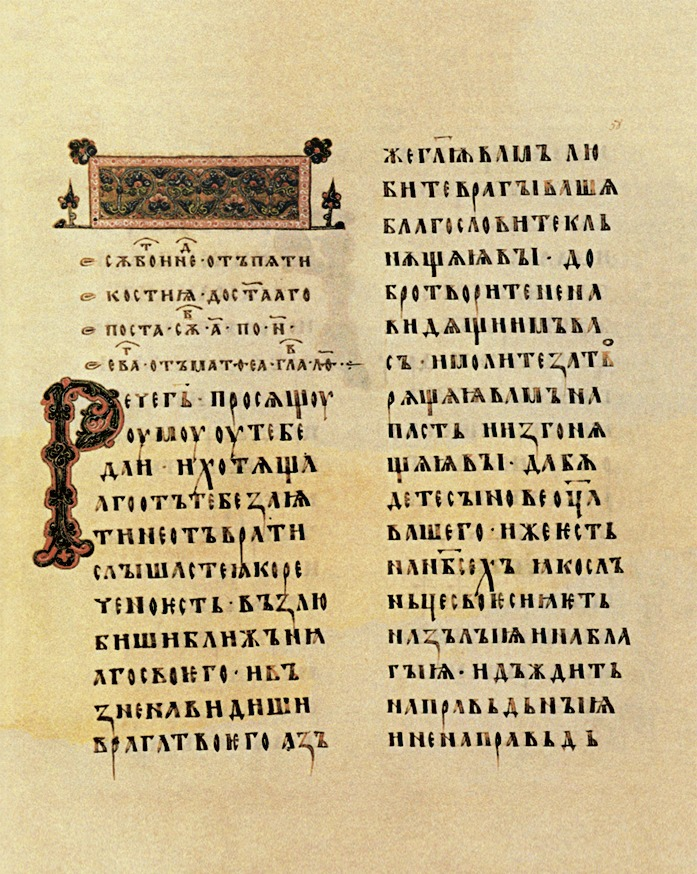 сѫбоинⷣе · отъпѧти
костиꙗ · достⷶаго
поста · сѫⷠ · а҃ · по · н҃ ·
еⷡⷢа · отъмат · ѳеа · гла · л҃ѳ ·
Рече г҃ь · просѧщоу
оумоу оу тебе
даи · и хотѧща
аго отъ тебе заꙗ
ти не отъврати
слышасте ꙗко ре
чено ѥсть · възлю
биши ближьнꙗ
аго своѥго · и въ
зненавидиши
врага твоѥго азъ
же гл҃ѭ вамъ лю
бите врагы вашѧ
благословите кль
нѧщѧꙗ вы · до
бро творите нена
видѧщиимъ ва
съ · и молите за тв
рѧщѧꙗ вамъ на
пасть и изгонѧ
щѧꙗ вы · да бѫ
дете сынове оц҃а
вашего · иже ѥсть
на нб҃сехъ ꙗко слъ
ньце своѥ сиꙗѥть
на зълыꙗ и на бла
гыꙗ · и дъждить
на правьдьныꙗ
и не направьдь